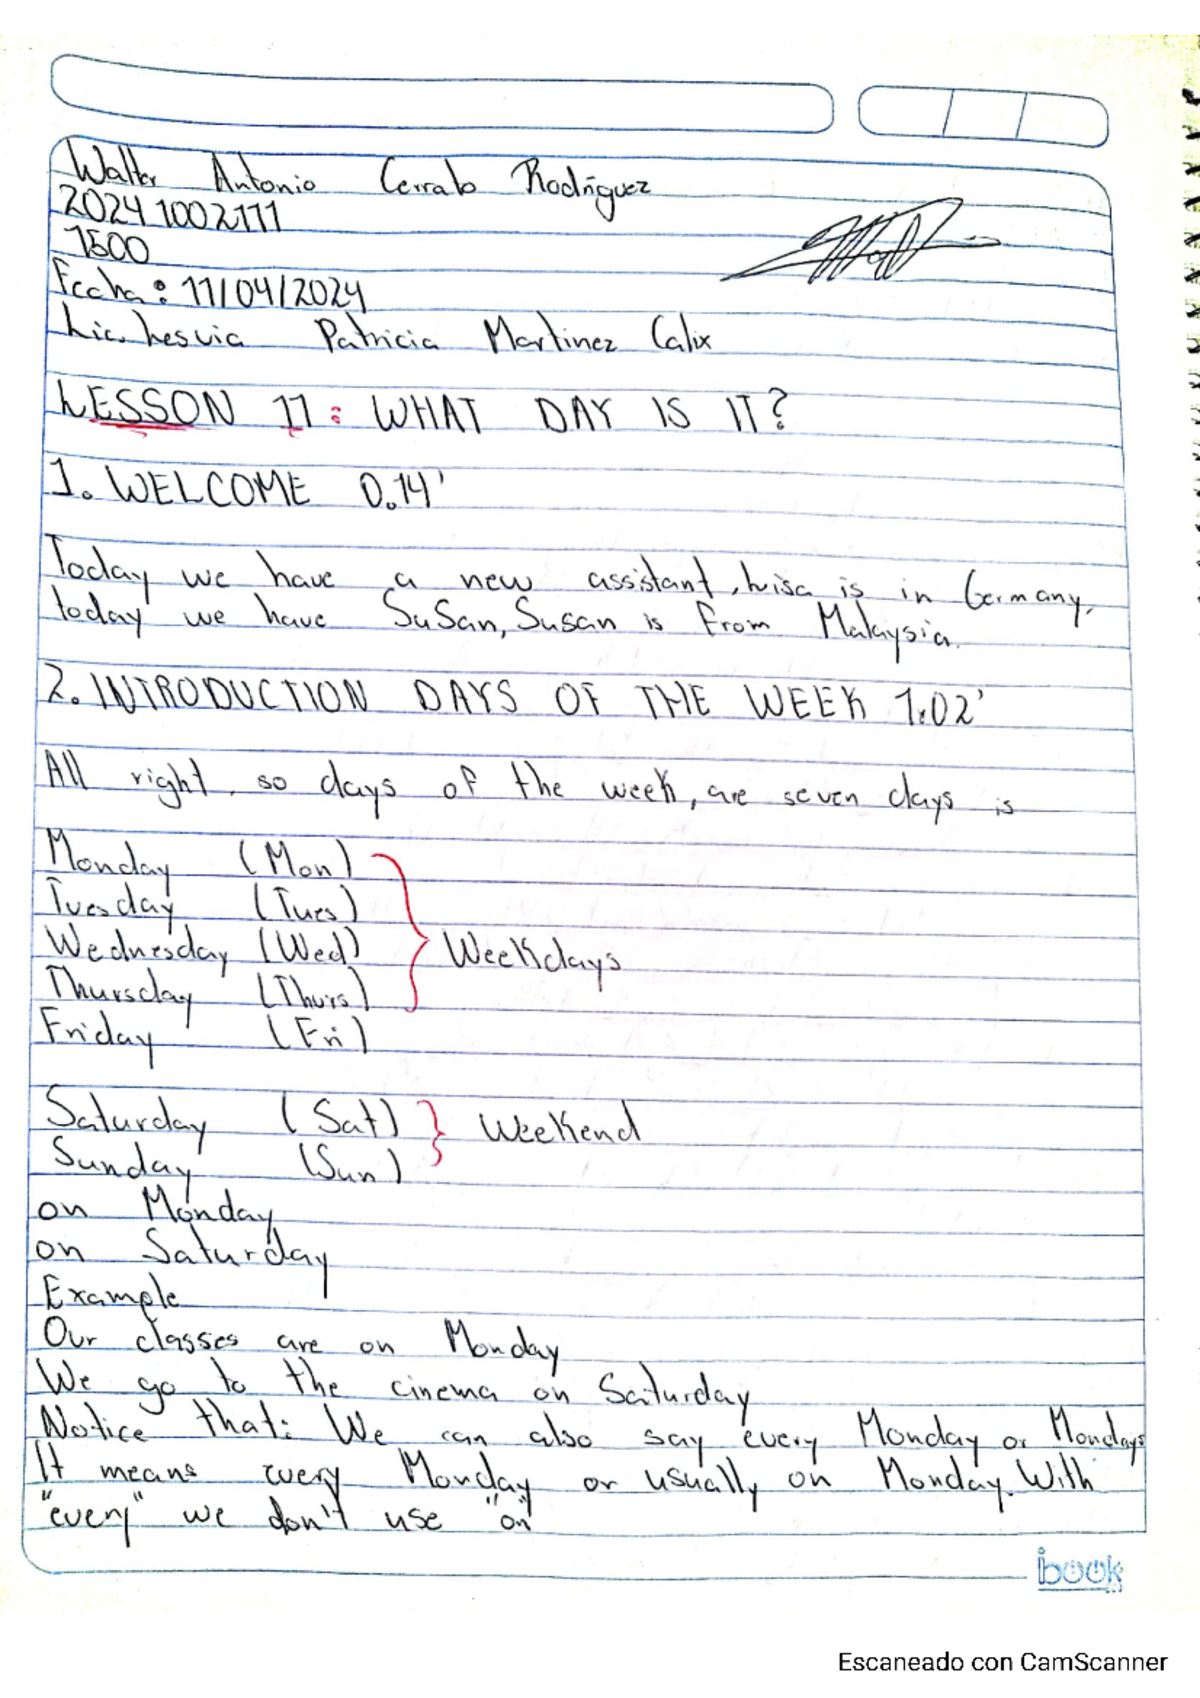 Walter Antonio Cerrato Rodríguez
20241002111
1500
Fecha: 11/04/2024
Lic. Lesvia Patricia Martinez Calix
LESSON 11: WHAT DAY IS IT?
1. WELCOME 0.14'
Today we have a new assistant, Luisa is in Germany,
today we have SuSan, Susan is from Malaysia.
2. INTRODUCTION DAYS OF THE WEEK 1:02'
All right, so days of the week, are seven days is
Monday (Mon)
Tuesday (Tues)
Wednesday (Wed) Weekdays
Thursday (Thurs)
Friday (Fri)
Saturday (Sat) Weekend
Sunday (Sun)
on Monday
on Saturday
Example
Our classes are on Monday
We go to the cinema on Saturday
Notice that: We can also say every Monday or Mondays
It means every Monday or usually on Monday. With
"every" we don't use "on"
ibook
Escaneado con CamScanner